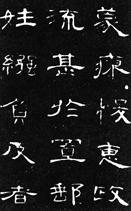 蒙瘳悛惠政
流甚於置郵
姓繦負反者